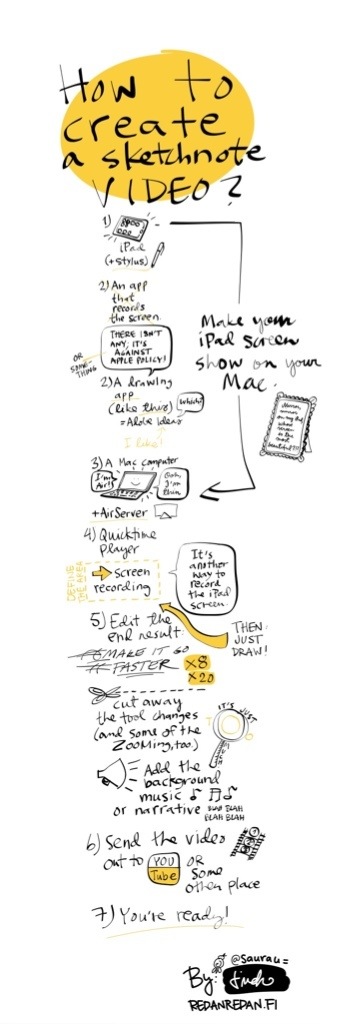 How to
create
a sketchnote
VIDEO?
1)
iPad
(+stylus)
2) An app
that
records
the screen.
THERE ISN'T
ANY, IT'S
AGAINST
APPLE POLICY!
OR
SOME-
THING
2) A drawing
app
(like this)
Which?
= Adobe Ideas
I like!
Make your
iPad screen
show on your
Mac.
3) A Mac computer
I'm
Air!
Ooh,
I'm
thin
+ AirServer
4) Quicktime
player
DEFINE
THE AREA
screen
recording
It's
another
way to
record
the iPad
screen.
5) Edit the
end result:
THEN:
JUST
DRAW!
MAKE IT GO
FASTER
x8
x20
cut away
the tool changes
(and some of the
zooming, too.)
IT'S
JUST
Add the
background
music
or narrative
BLAH BLAH
BLAH BLAH
6) Send the video
out to
YOU
Tube
OR
some
other place
7) You're ready!
By:
REDANREDAN.FI